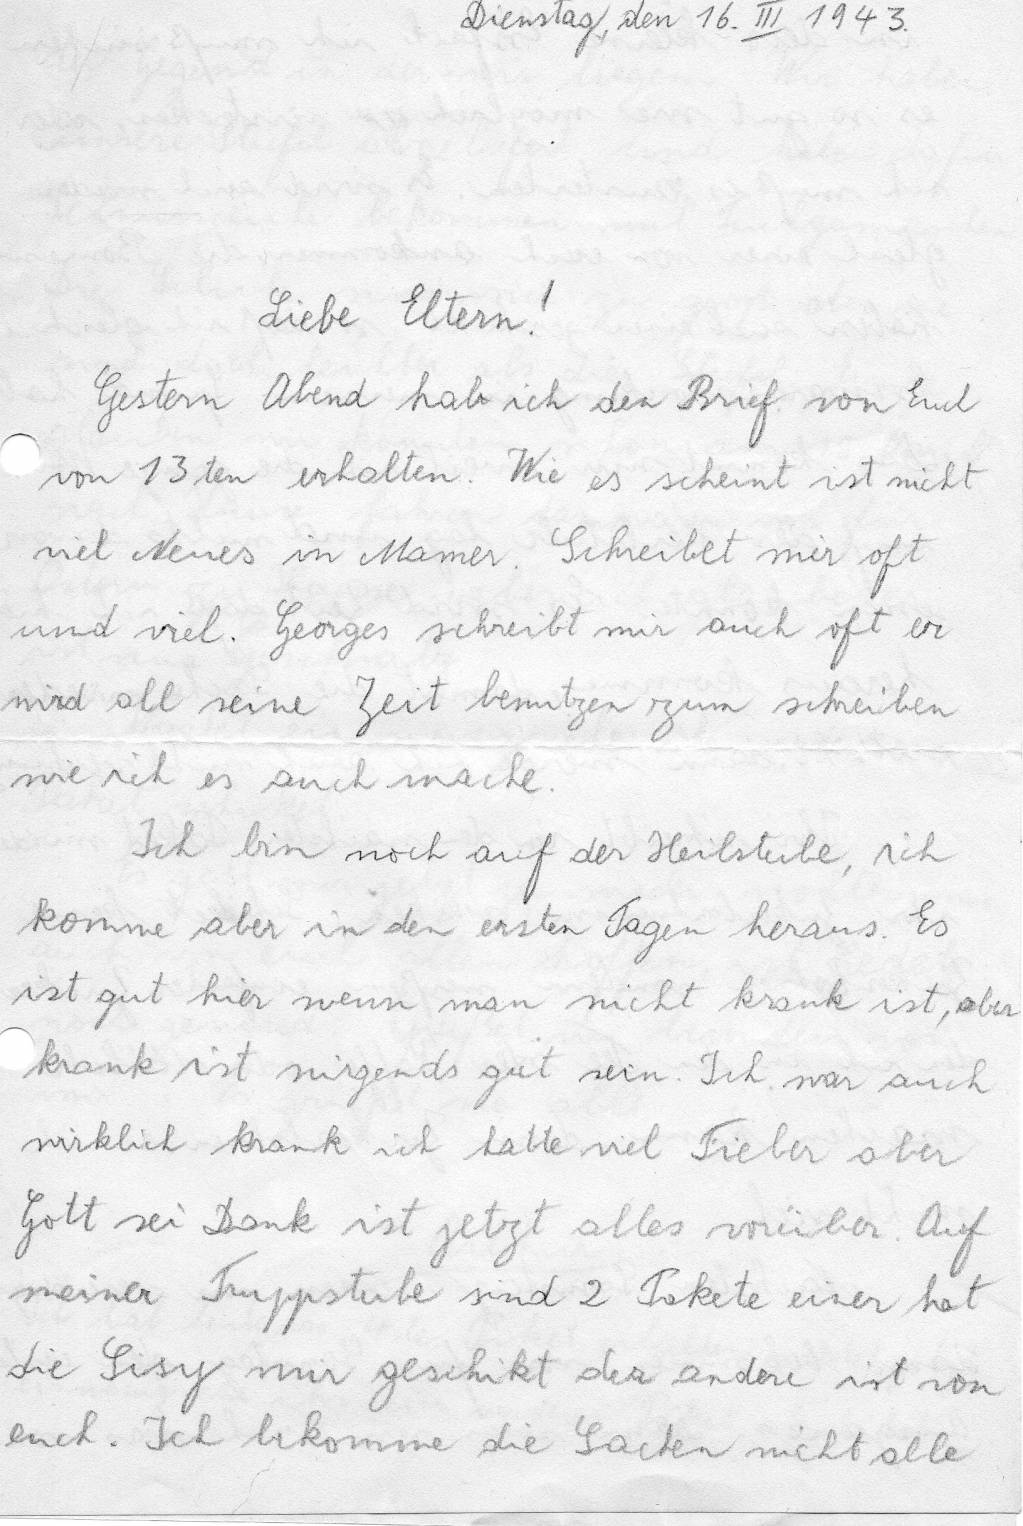 Dienstag, den 16. III 1943.
Liebe Eltern!
Gestern Abend hab ich den Brief von Eul
von 13ten erhalten. Wie es scheint ist nicht
viel Neues in Mamer. Schreibet mir oft
und viel. Georges schreibt mir auch oft er
wird all seine Zeit benutzen zum schreiben
wie ich es auch mache.
Ich bin noch auf der Heilstube, ich
komme aber in den ersten Tagen heraus. Es
ist gut hier wenn man nicht krank ist, aber
krank ist nirgends gut sein. Ich war auch
wirklich krank ich hatte viel Fieber aber
Gott sei Dank ist jetzt alles vorüber. Auf
meiner Truppstube sind 2 Pakete einer hat
die Sisy mir geschikt der andere ist von
euch. Ich bekomme die Sachen nicht alle